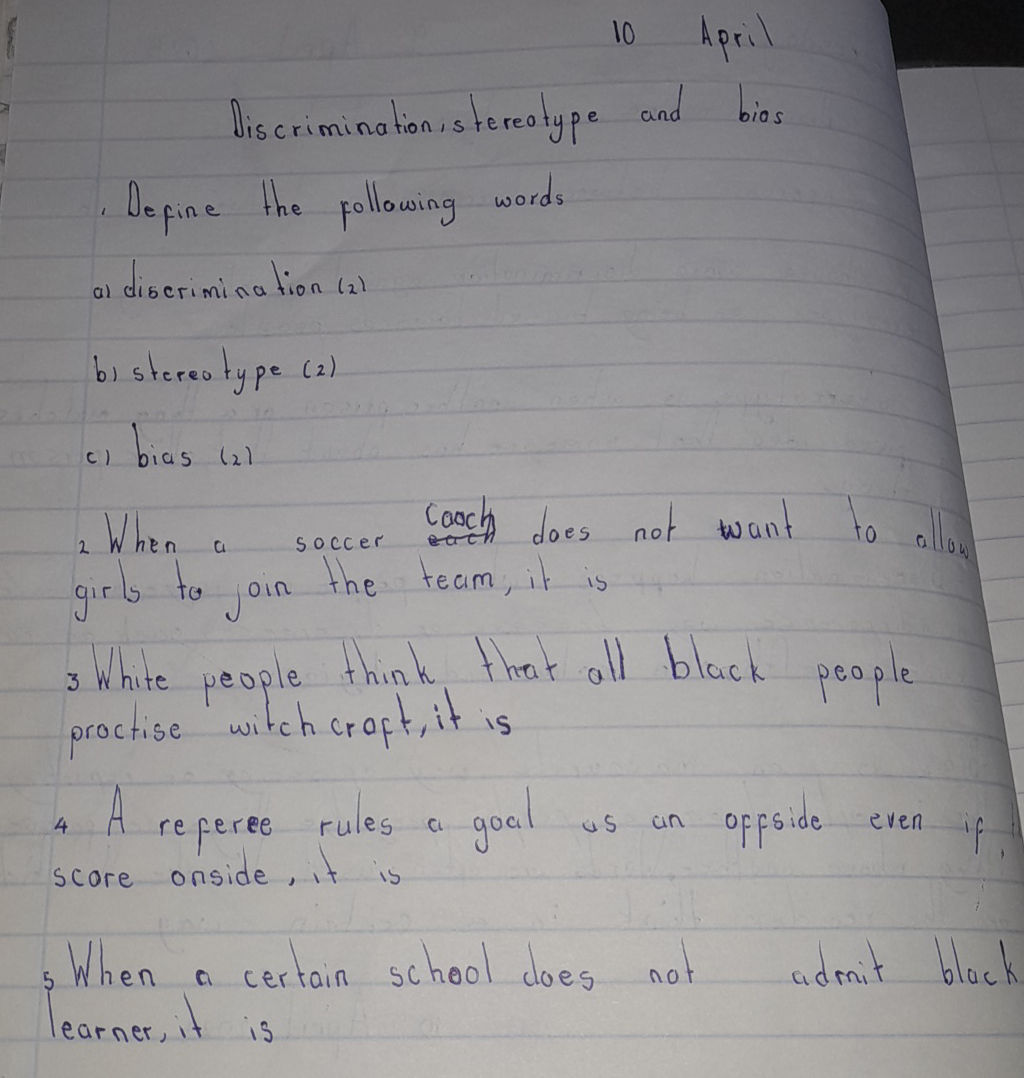 10 April
Discrimination, stereotype and bias
. Define the following words
a) discrimination (2)
b) stereotype (2)
c) bias (2)
2 When a soccer coach does not want to allow
girls to join the team, it is
3 White people think that all black people
practise witch craft, it is
4 A referee rules a goal as an offside even if
score onside, it is
5 When a certain school does not admit black
learner, it is